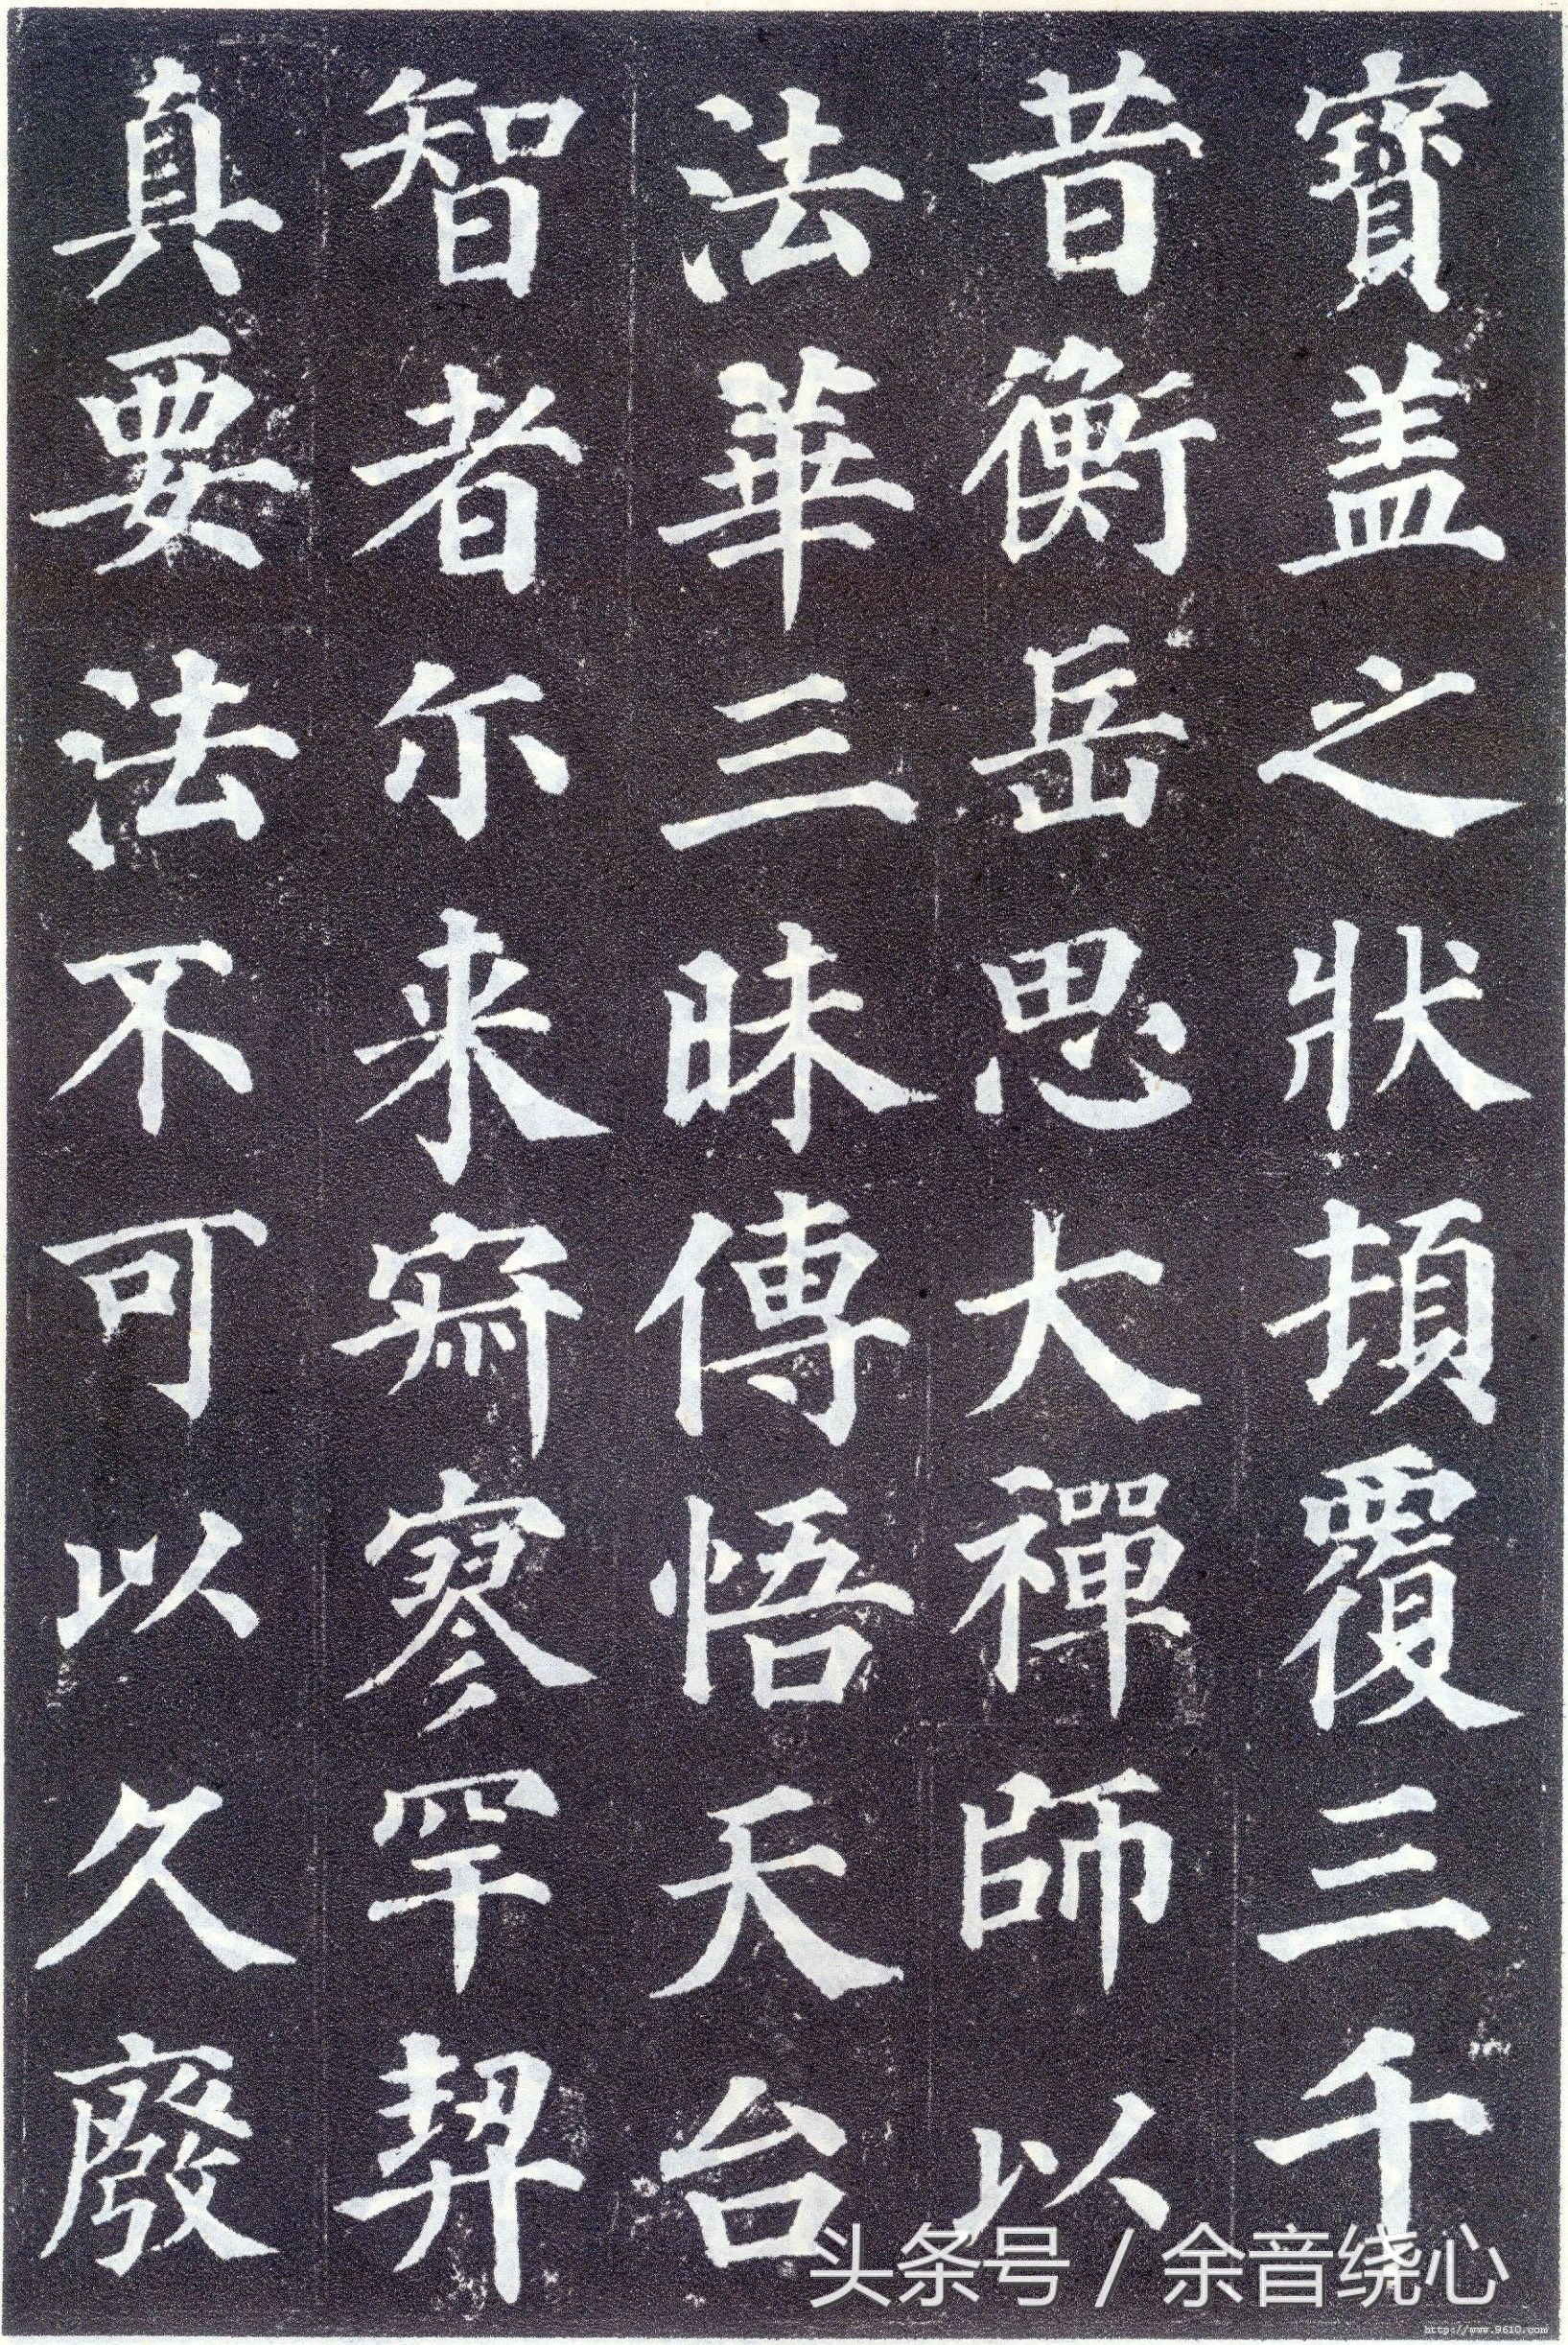 寶盖之狀頂覆三千
昔衡岳思大禪師以
法華三昧傳悟天台
智者尒来寂寥罕契
真要法不可以久廢
头条号 / 余音绕心
http://www.9610.com